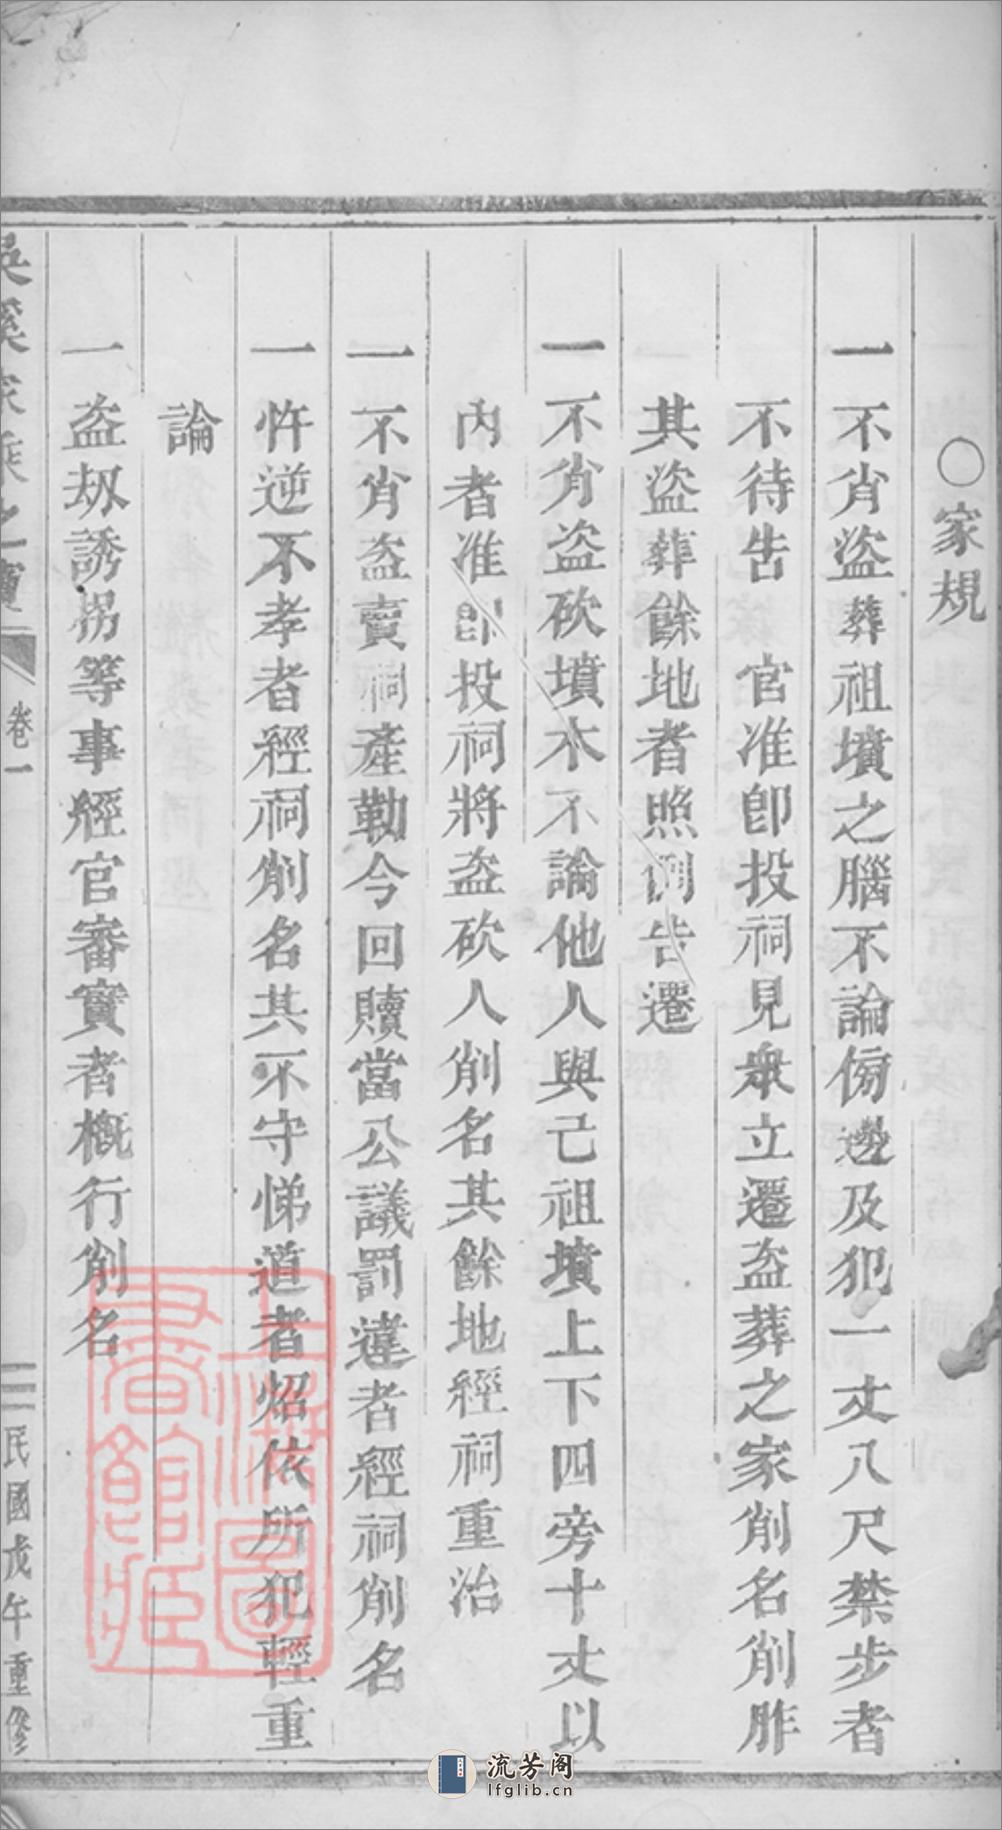 ○家規
一不肖盜葬祖墳之腦不論傍邊及犯一丈八尺禁步者
不待告　官准卽投祠見衆立遷盜葬之家削名削胙
其盜葬餘地者照例告遷
一不肖盜砍墳木不論他人與己祖墳上下四旁十丈以
內者准卽投祠將盜砍人削名其餘地經祠重治
一不肖盜賣祠產勒令回贖當公議罰違者經祠削名
一忤逆不孝者經祠削名其不守悌道者炤依所犯輕重
論
一盜劫誘拐等事經官審實者概行削名
吳溪家乘之一　卷一　民國戊午重修
上海圖書館藏
流芳阁
lfglib.cn